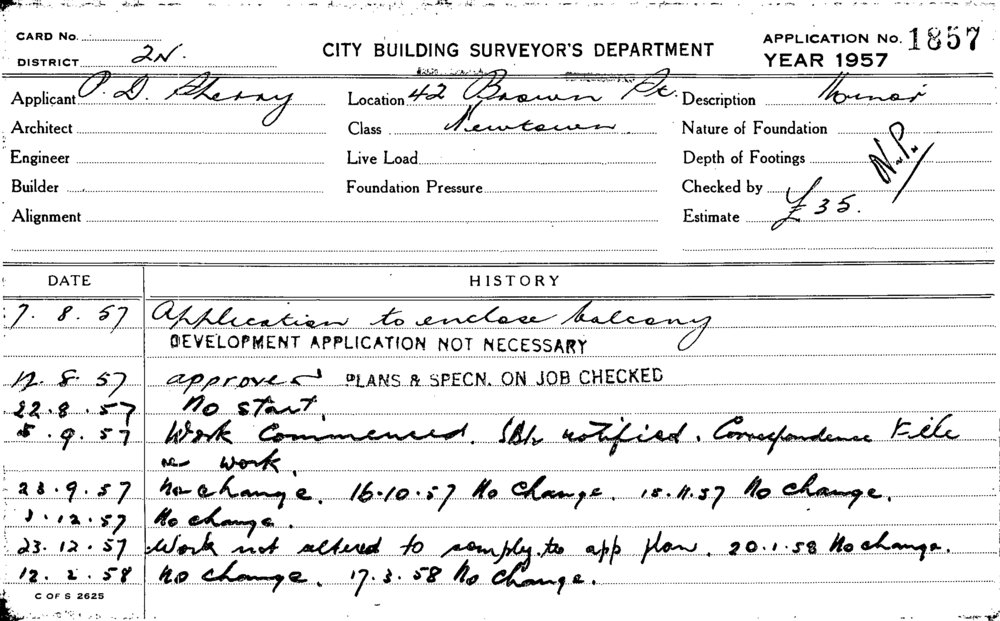 CARD No.
DISTRICT 2N.
CITY BUILDING SURVEYOR'S DEPARTMENT
APPLICATION No. 1857
YEAR 1957
Applicant P. D. Sherry Location 42 Brown St. Description Minor
Architect Class Newtown. Nature of Foundation
Engineer Live Load Depth of Footings N.P.
Builder Foundation Pressure Checked by
Alignment Estimate £35.
DATE HISTORY
7. 8. 57 Application to enclose balcony
DEVELOPMENT APPLICATION NOT NECESSARY
12. 8. 57 approved PLANS & SPECN. ON JOB CHECKED
22.8.57 No start.
5.9.57 Work Commenced. notified. Correspondence File
re work.
23.9.57 No change. 16.10.57 No change. 15.11.57 No change.
12.57 No change.
23.12.57 Work not altered to comply to app plan. 20.1.58 No change.
12.2.58 No change. 17.3.58 No change.
C OF S 2625